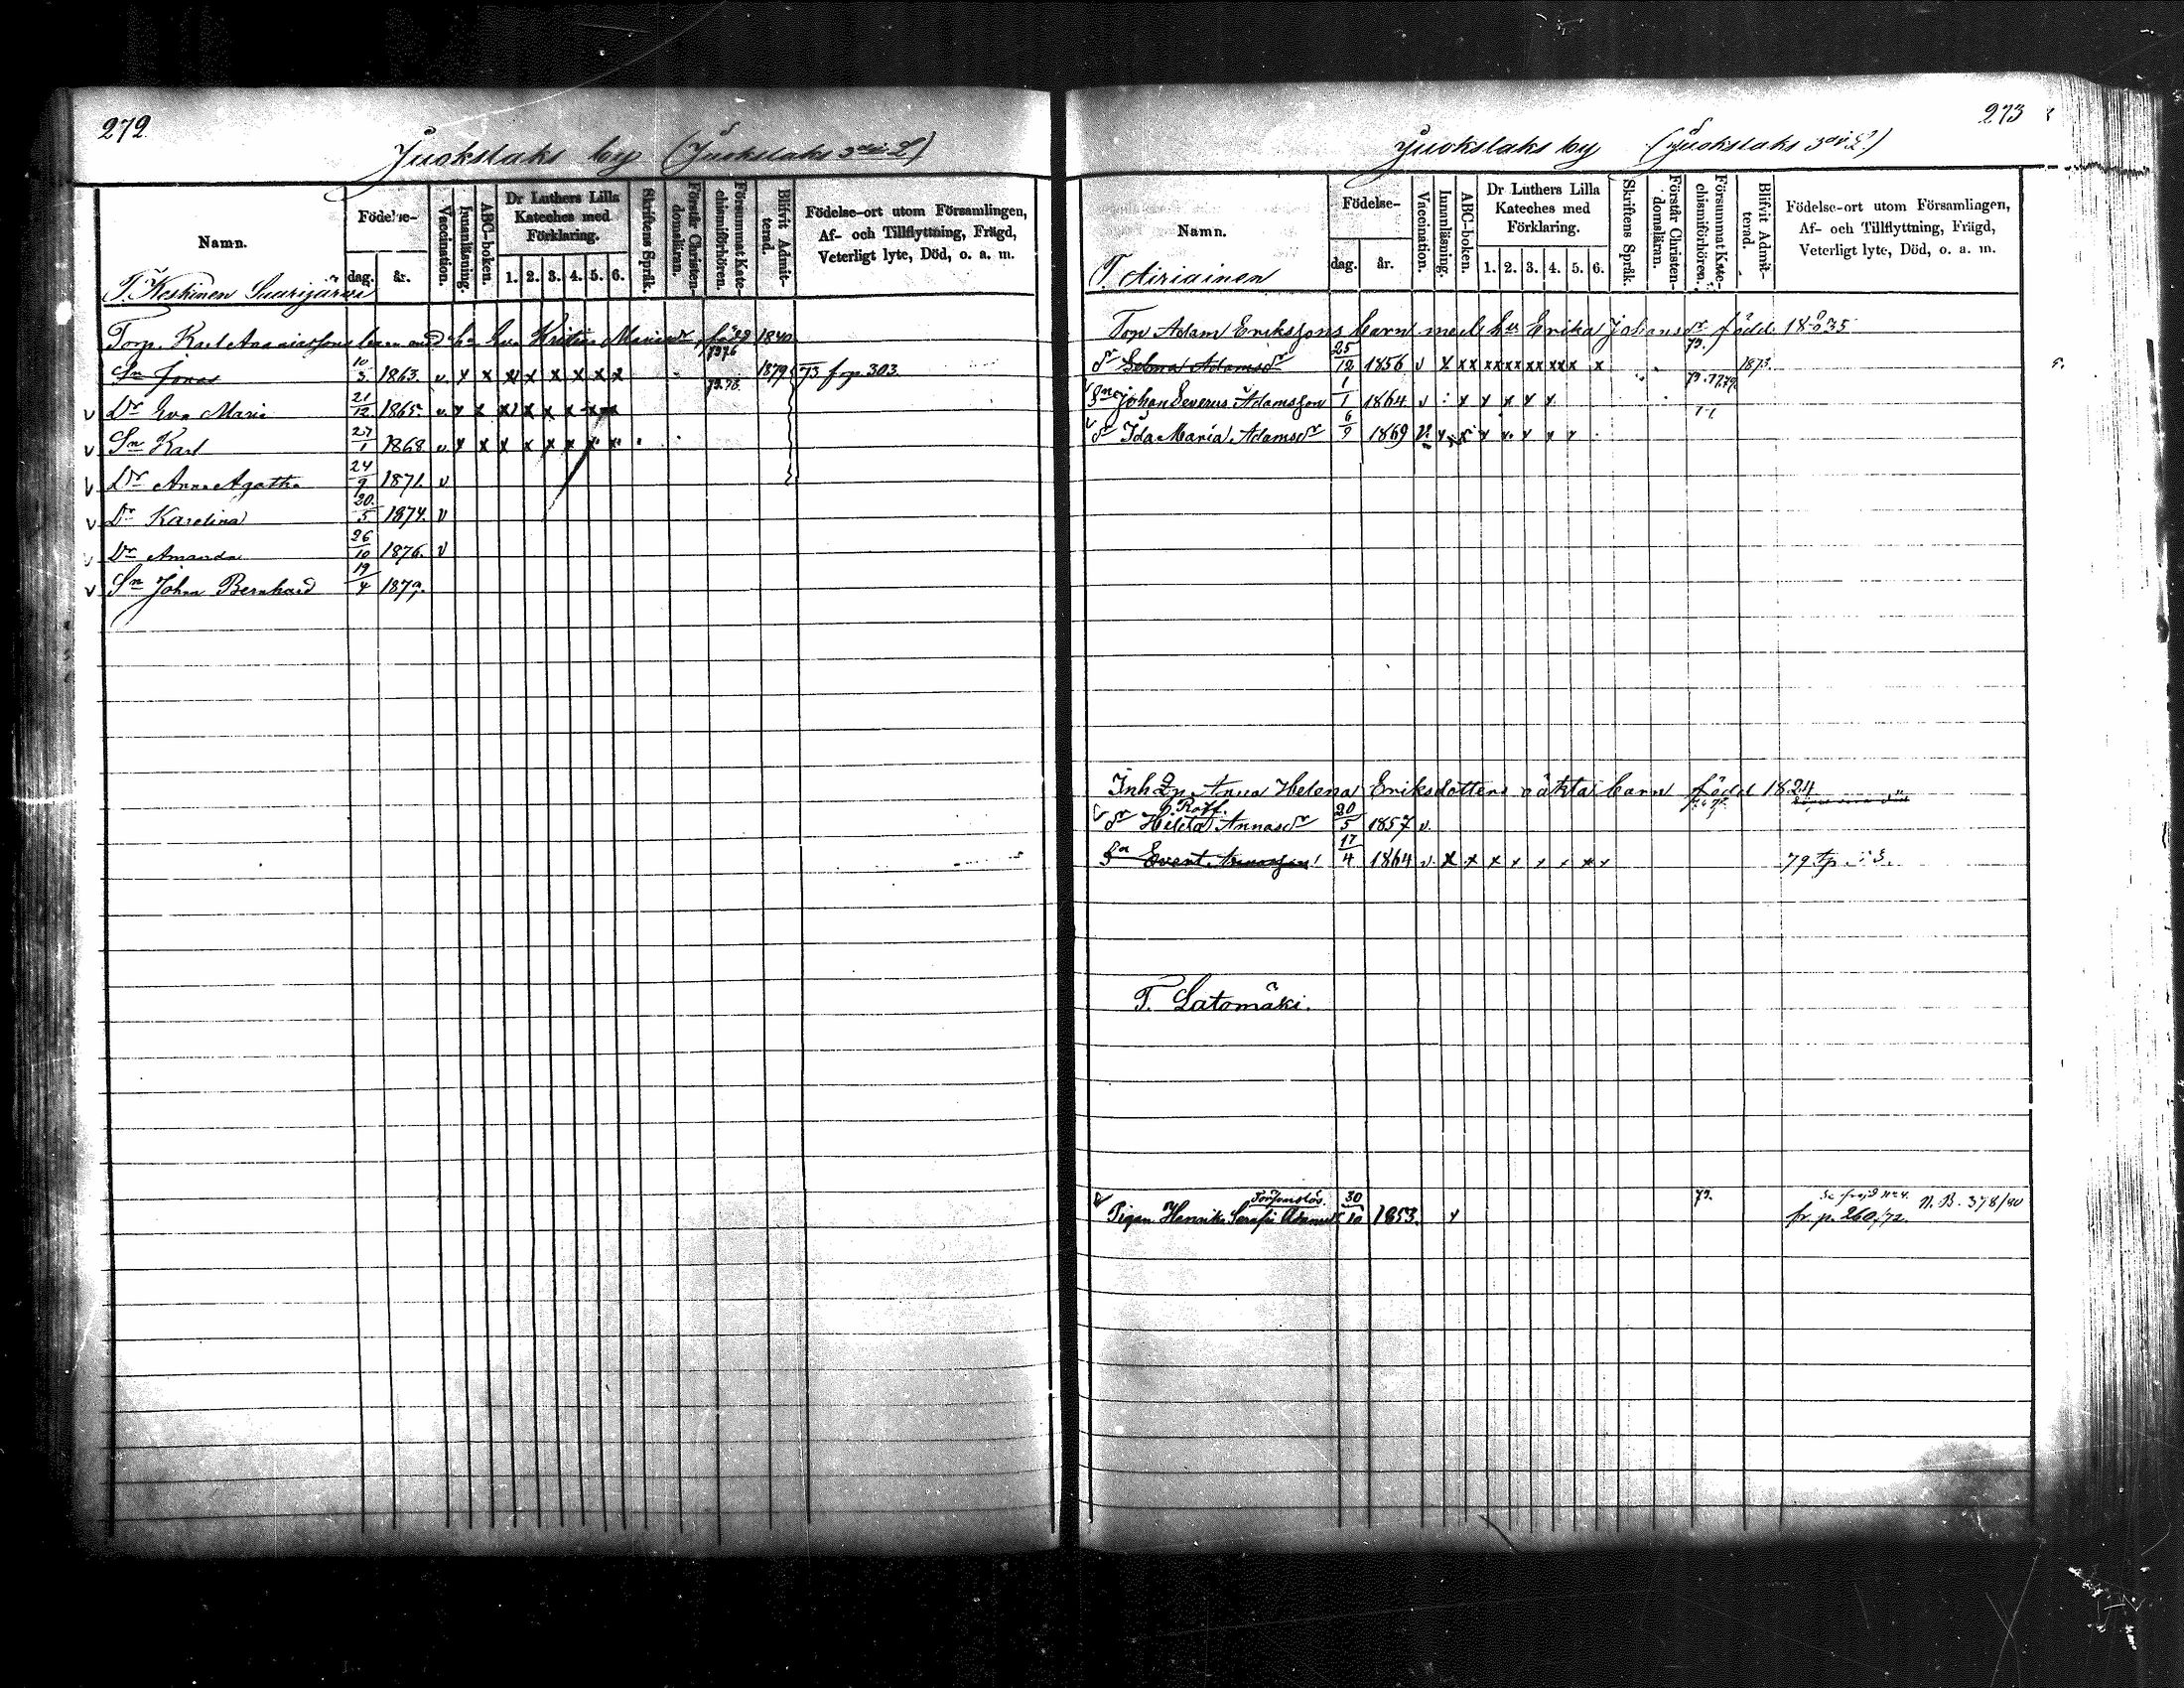 272.
Juokslaks by (Juokslaks 3 L)
Namn.
Födelse-
dag.
år.
Vaccination.
Innanläsning.
ABC-boken.
Dr Luthers Lilla Kateches med Förklaring.
1. 2. 3. 4. 5. 6.
Skriftens Språk.
Förstår Christendomsläran.
Försummat Katechismiförhören.
Blifvit Admitterad.
Födelse-ort utom Församlingen, Af- och Tillflyttning, Frägd, Veterligt lyte, Död, o. a. m.
T. Keskinen Saarijärwi
Torp. Karl Ananiassons barn med h. Eva Kristina född 1840
Sn Jonas 10/3 1863. v x x x x x x x x 1879 73 f. p. 303.
v Dr Eva Maria 21/12 1865. v x x x x x x x x
v Sn Karl 27/1 1868 v x x x x x x x x
v Dr Anna Agatha 24/9 1871. v
v Dr Karolina 20/5 1874. v
v Dr Amanda 26/10 1876. v
v Sn Johan Bernhard 19/4 1879.
273
Juokslaks by (Juokslaks 3 L.)
Namn.
Födelse-
dag.
år.
Vaccination.
Innanläsning.
ABC-boken.
Dr Luthers Lilla Kateches med Förklaring.
1. 2. 3. 4. 5. 6.
Skriftens Språk.
Förstår Christendomsläran.
Försummat Katechismiförhören.
Blifvit Admitterad.
Födelse-ort utom Församlingen, Af- och Tillflyttning, Frägd, Veterligt lyte, Död, o. a. m.
T. Airiainen
Torp Adam Erikssons barn med hu Erika Johansdr född 1835
dr Selma Adamsdr 25/12 1856 v x x x x x x x x x x x 1873.
v Sn Johan Severus Adamsson 1/1 1864 v x x x x x
v dr Ida Maria Adamsdr 6/9 1869 v. x x x x x x x
Inh Anna Helena Eriksdotters oäkta barn född 1824
v dr Hilda Annasdr 20/5 1857 v.
Sn Evert Annasson 17/4 1864 v. x x x x x x x x 79
T. Latomäki.
Pigan Henrika Serafia Adamsdr 30/10 1853. x 79. fr. p. 260/72. N. B. 378/80